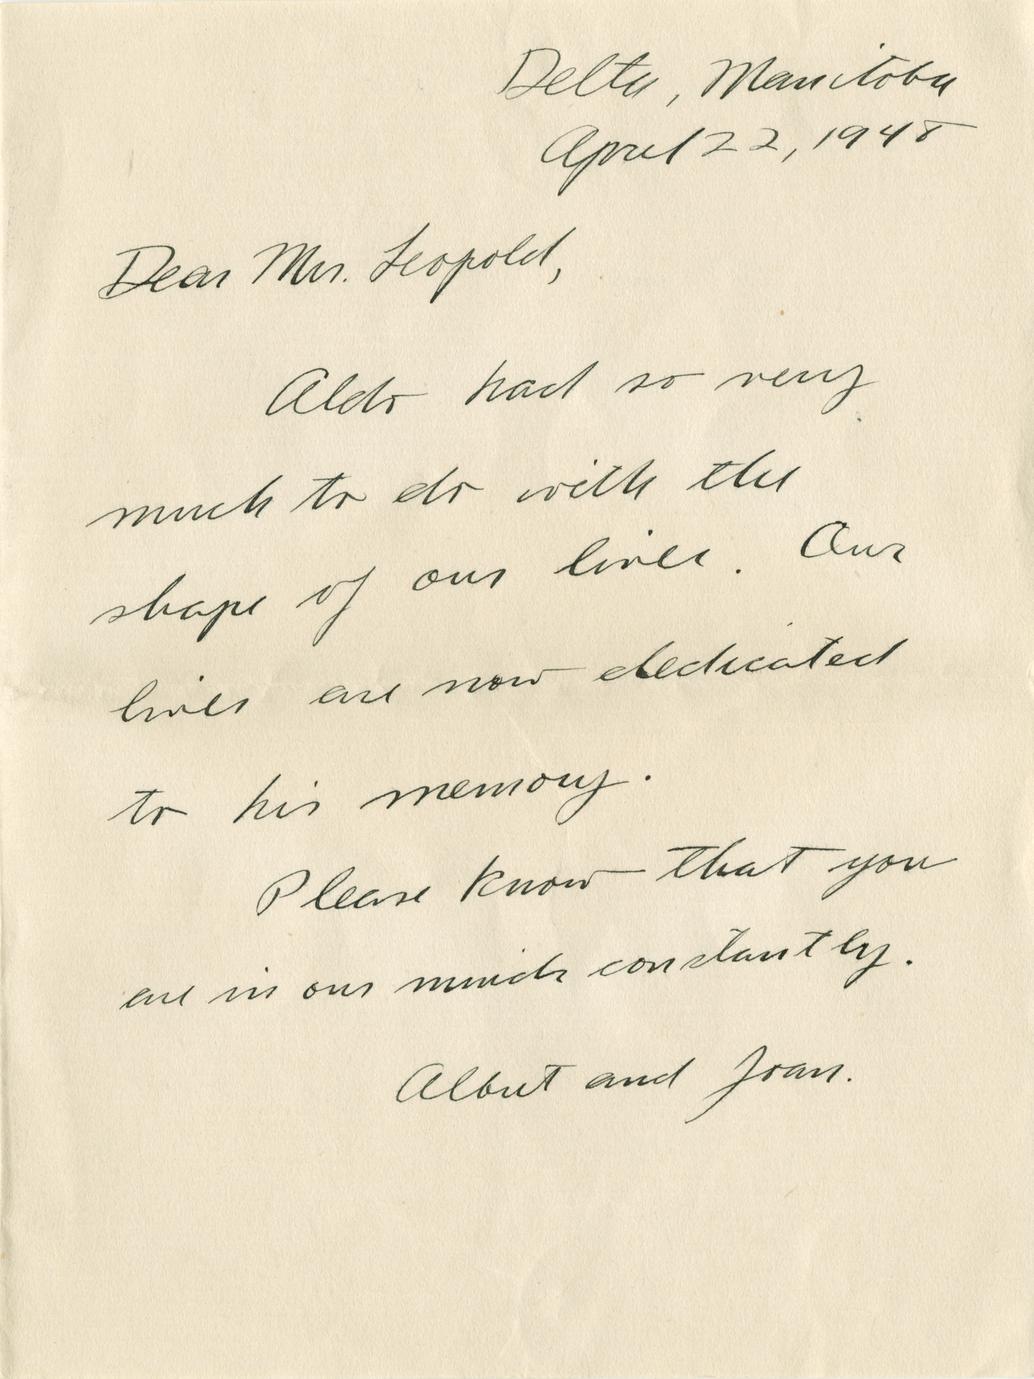 Delta, Manitoba
April 22, 1948
Dear Mrs. Leopold,
Aldo had so very
much to do with the
shape of our lives. Our
lives are now dedicated
to his memory.
Please know that you
are in our minds constantly.
Albert and Joan.